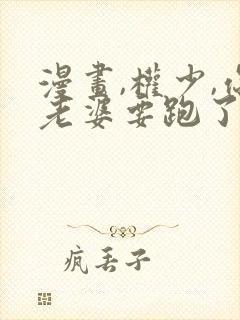 漫畫,權少,你
老婆要跑了
瘋丟子